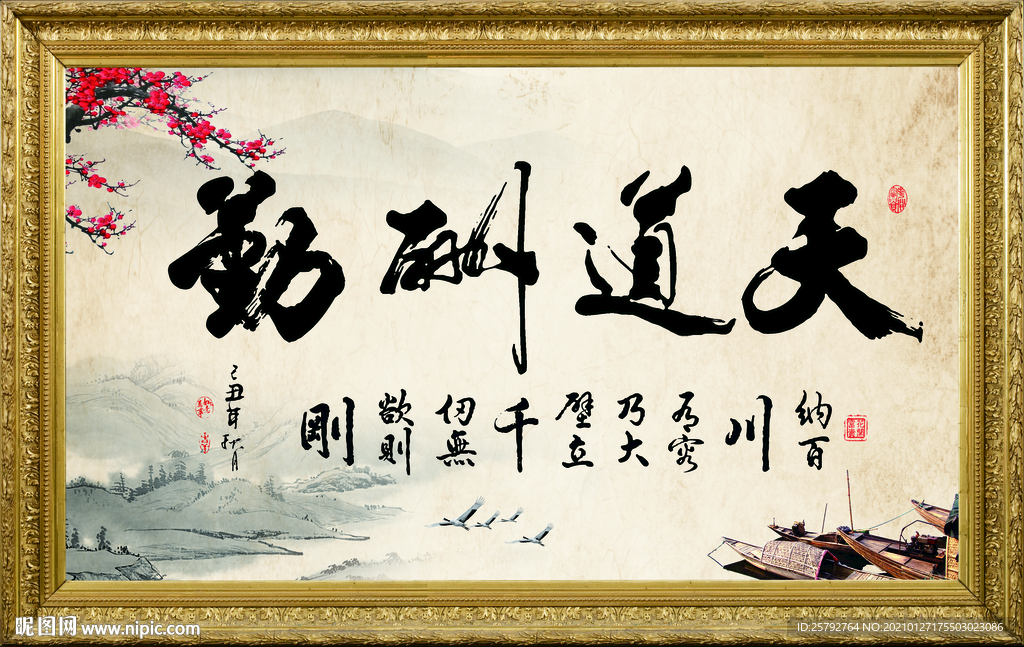 天道酬勤
納百川有容乃大壁立千仞無欲則剛
己丑年秋月
昵图网 www.nipic.com
ID:25792764 NO:20210127175503023086